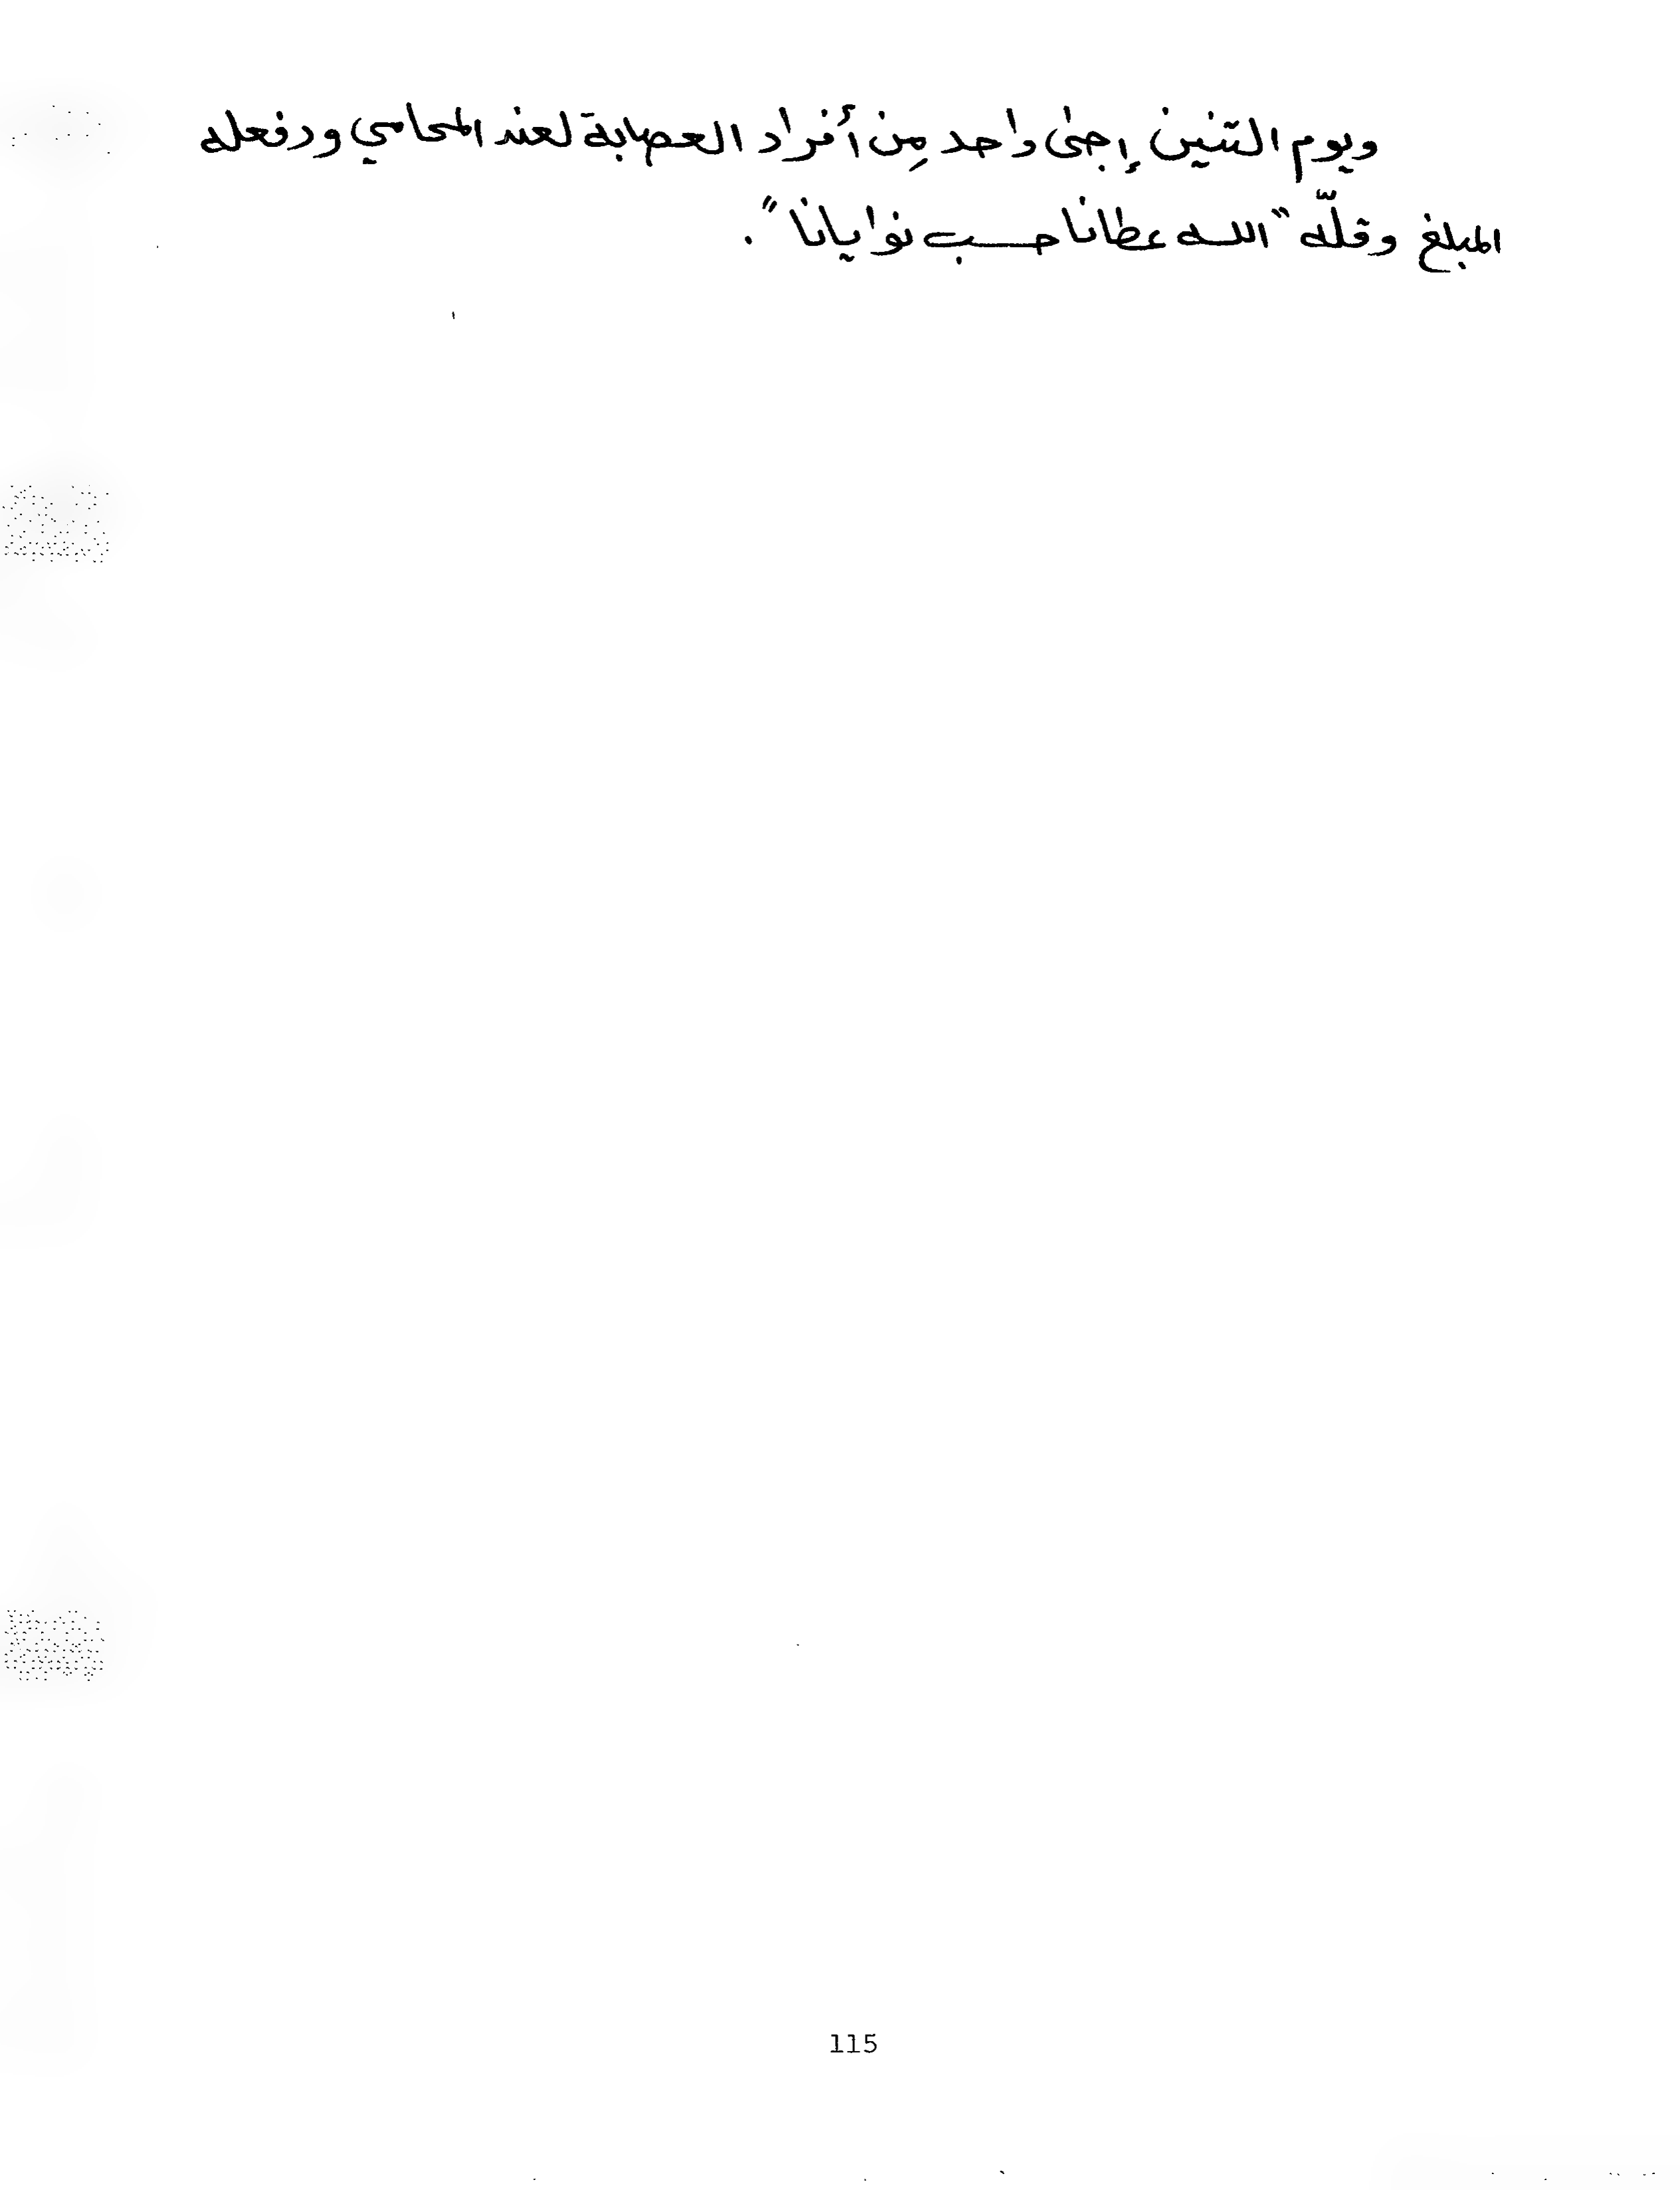 ويوم التنين إجىٰ واحد مِن أفراد العصابة لعند المحامي ودفعله
المبلغ وقلّه "الله عطانا حسب نوايانا".
115